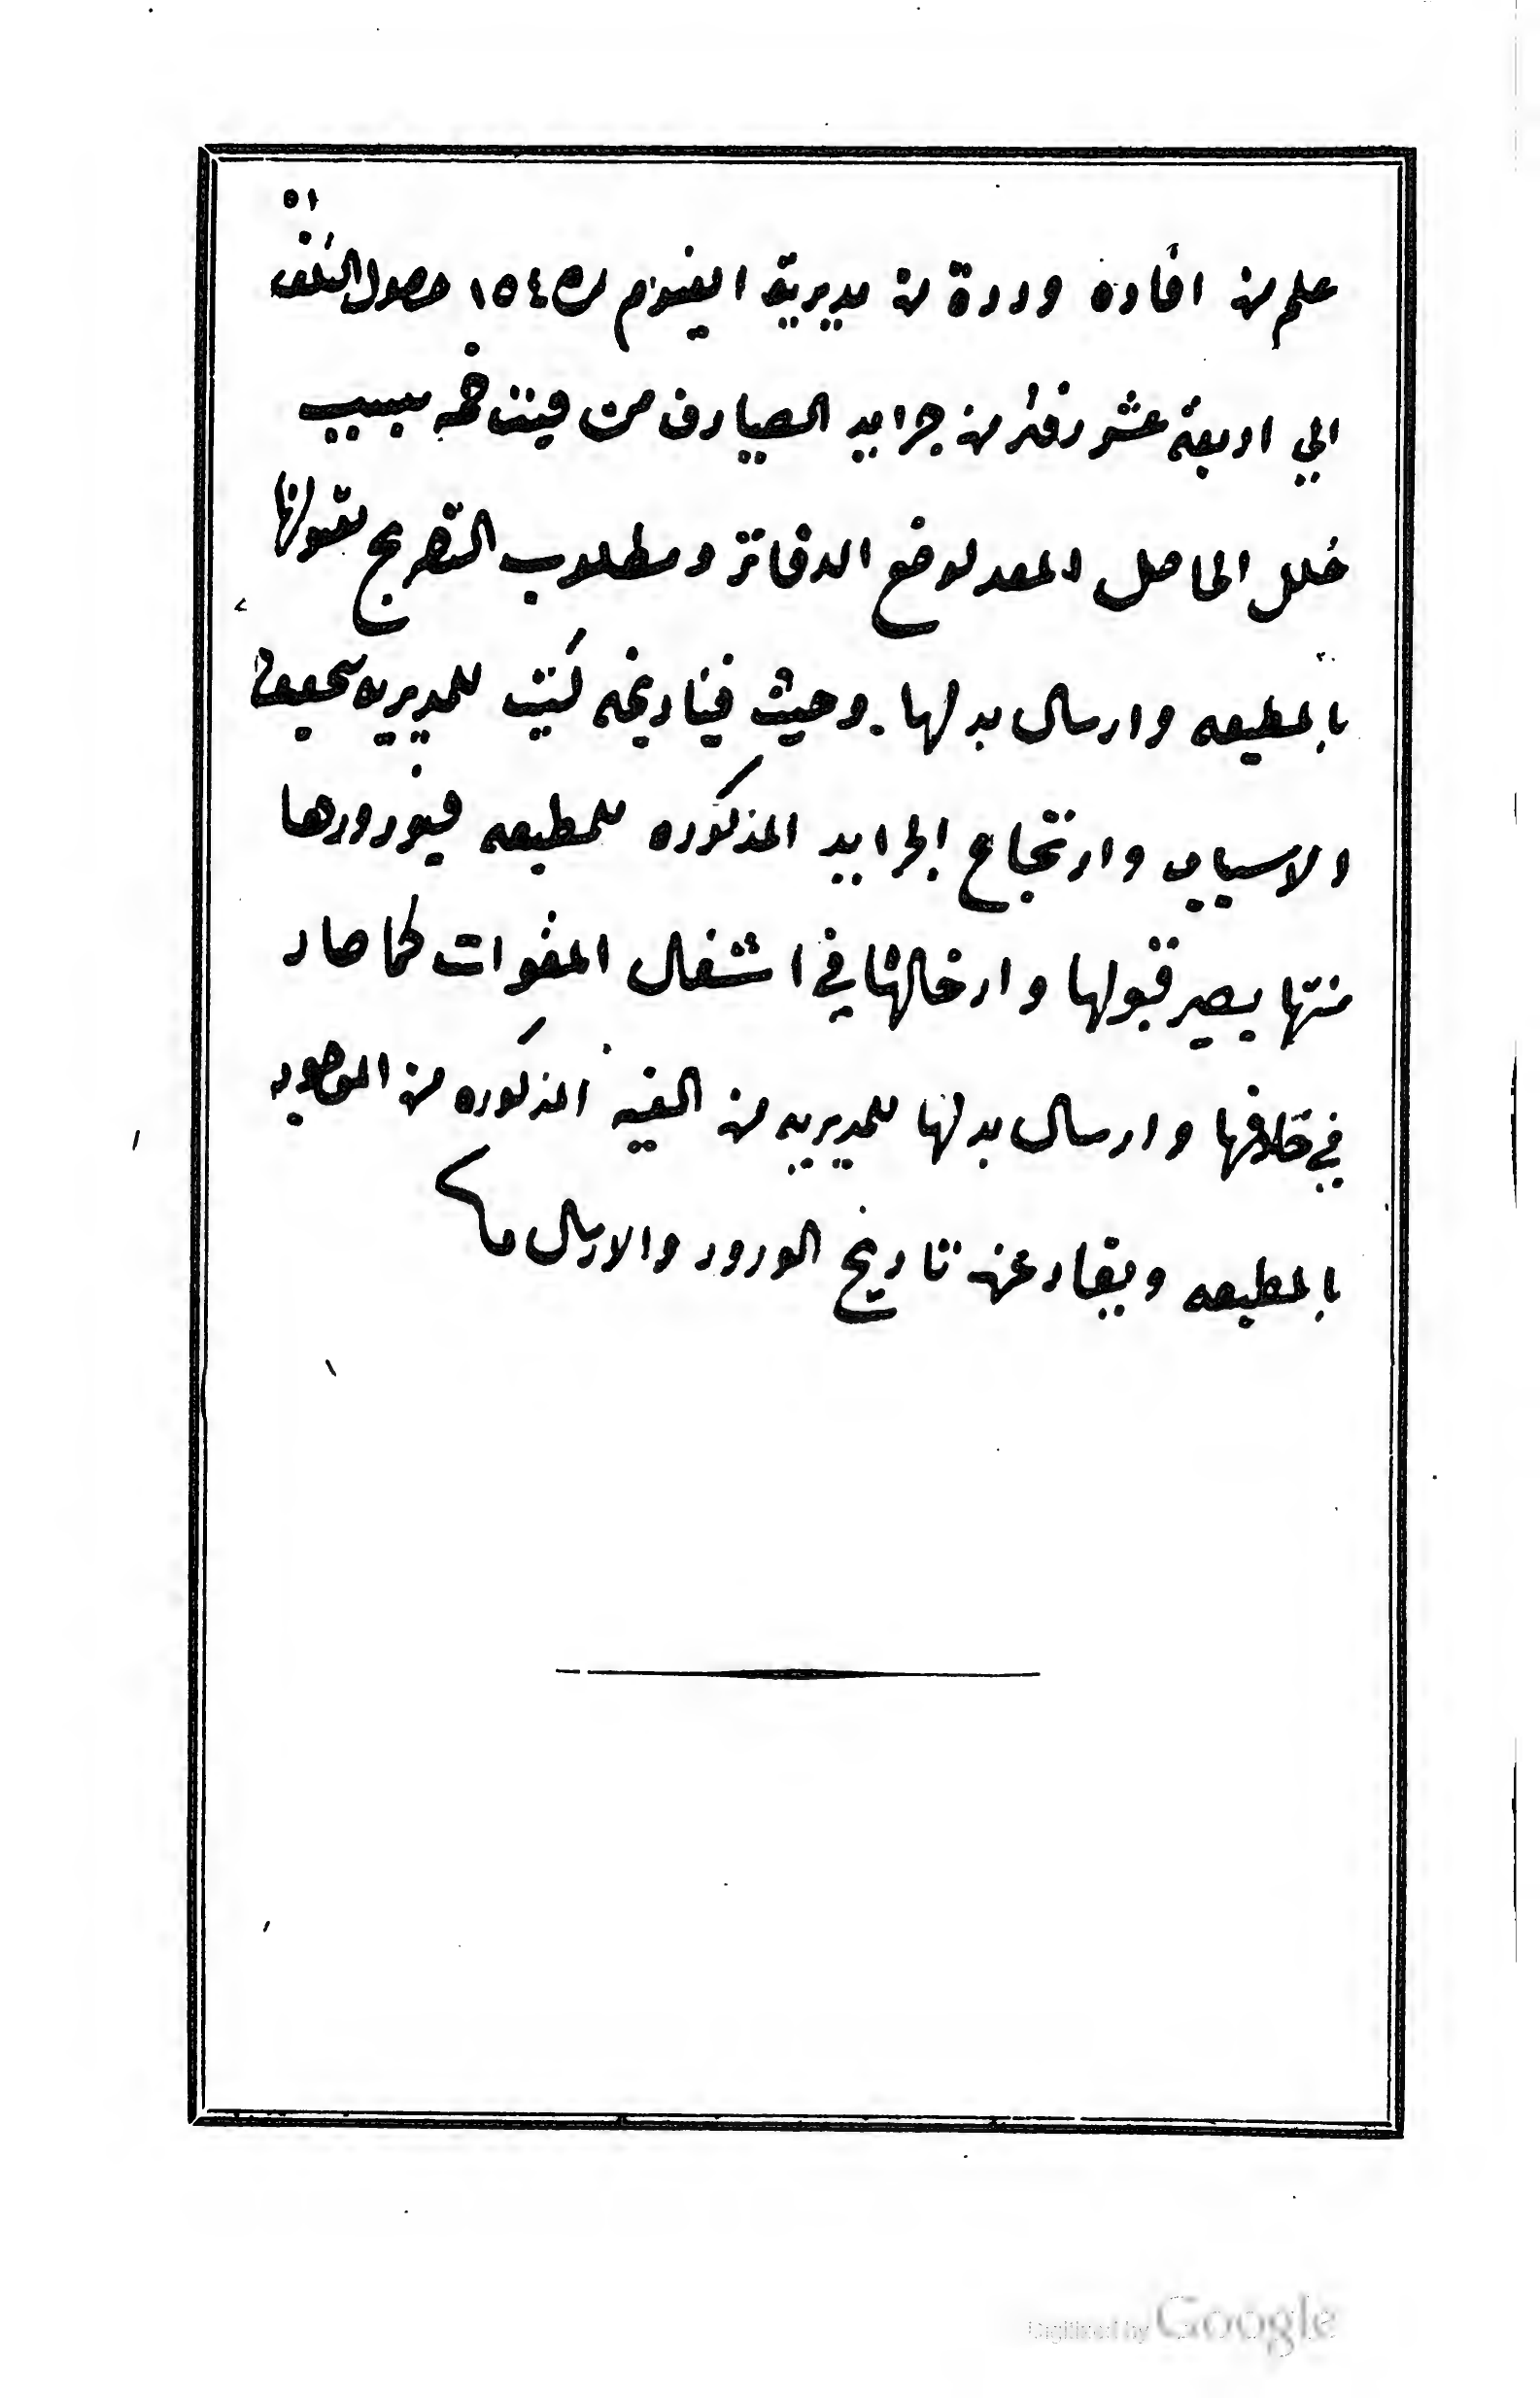 ٥١
علم من افاده وردة من مديرية الفيوم ١٥٤ حصول التلف
الي اربعة عشر دفتر من جرايد الصيارف من فيئت خمه بسبب
خلل الحاصل المعد لوضع الدفاتر ومطلوب التصريح بقبولها
بالمطبعه وارسال بدلها. وحيث فيتاريخه كتب للمديريه بتحقيق
الاسباب وارتجاع الجرايد المذكوره للمطبعه فيورورها
منها يصير قبولها وادخالها في اشغال المقوات كما صار
في خلافها وارسال بدلها للمديريه من الفيه المذكوره من الموجود
بالمطبعه ويفاد عن تاريخ الورود والارسال
Digitized by Google